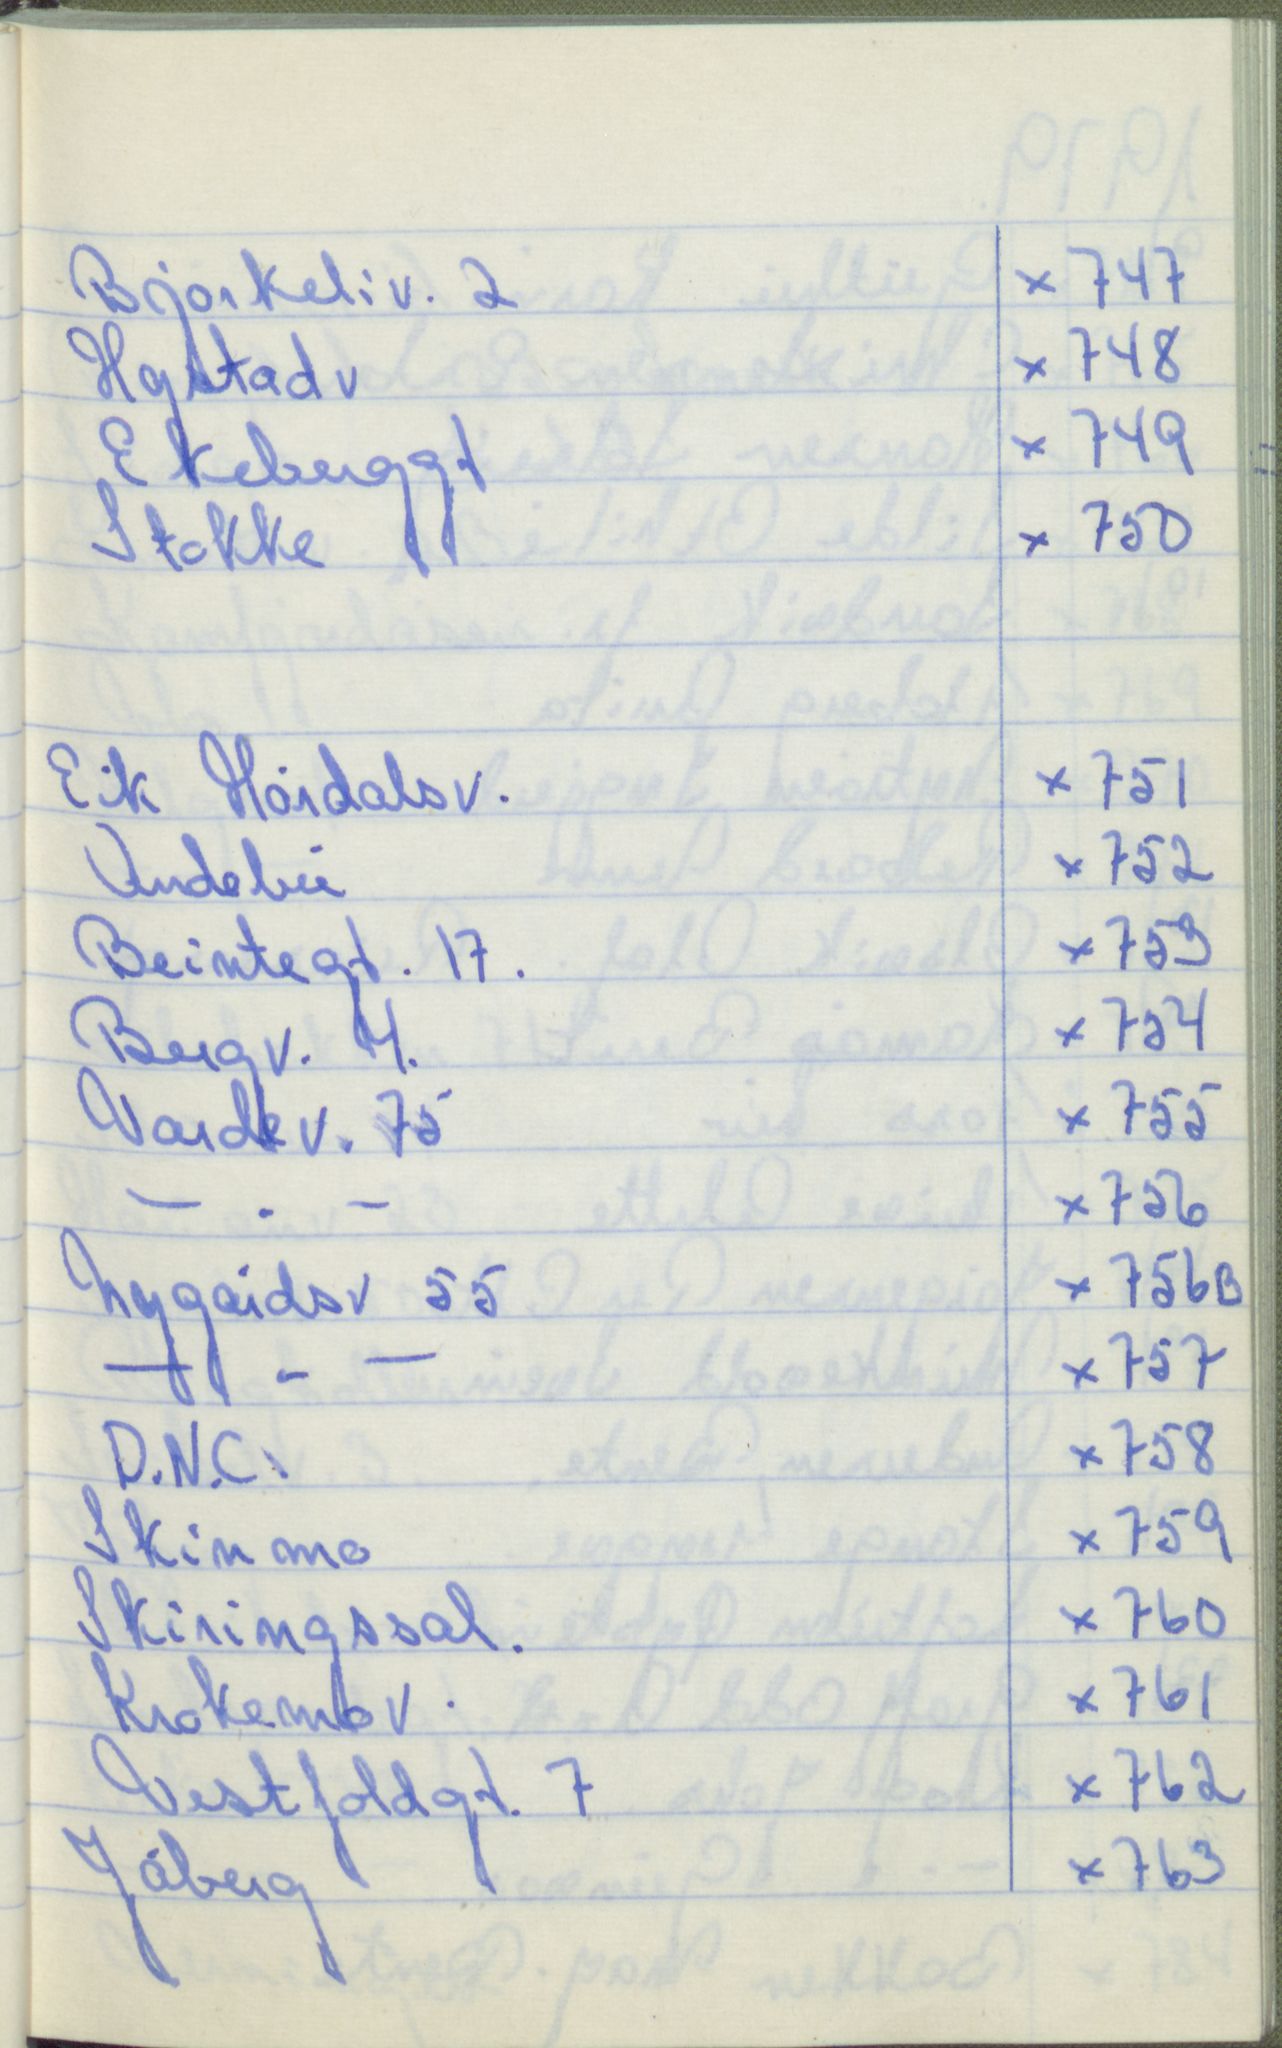 Bjørkeliv. 2 x 747
Hystadv x 748
Ekeberggt x 749
Stokke x 750
Eik Hårdalsv. x 751
Andebu x 752
Beintegt. 17. x 753
Bergv. 4. x 754
Vardev. 75 x 755
— . — x 756
Nygårdsv 55 x 756B
— - — x 757
D.N.C. x 758
Skinmo x 759
Skiringssal. x 760
Krokemov. x 761
Vestfoldgt. 7 x 762
Jåberg x 763